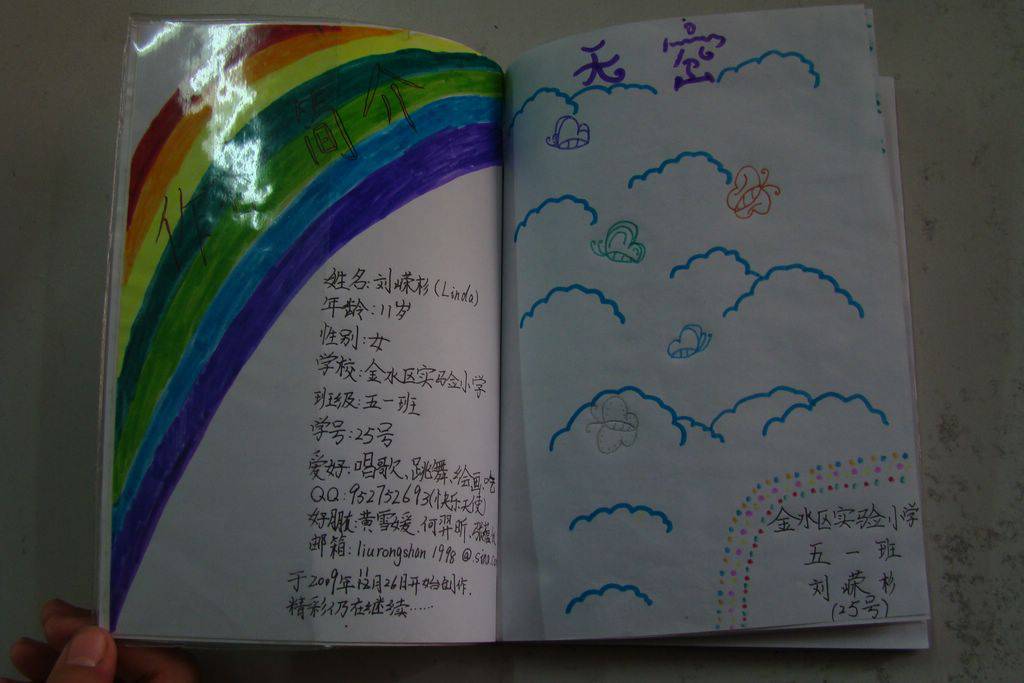 简介
姓名:刘嵘杉(Linda)
年龄:11岁
性别:女
学校:金水区实验小学
班级:五一班
学号:25号
爱好:唱歌、跳舞、绘画、吃
QQ:952752693(快乐天使)
好朋友:黄雪媛、何羿昕、
邮箱:liurongshan1998@.sina.co
于2009年12月26日开始创作.
精彩仍在继续……
天空
金水区实验小学
五一班
刘嵘杉
(25号)